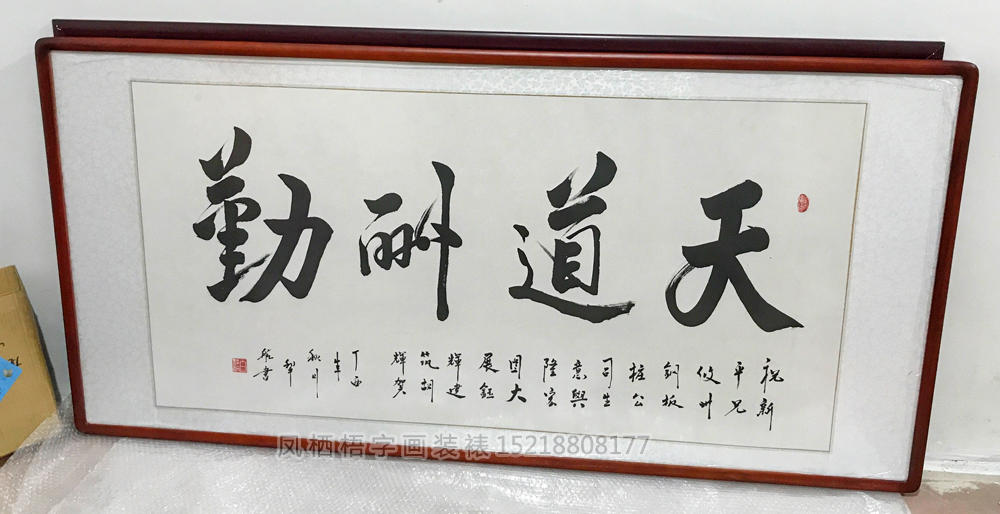 天道酬勤
祝新
平兄
攸州
钢板
桩公
司生
意興
隆宏
图大
展鈺
輝建
筑胡
輝贺
丁酉
年
秋月
犂
書
凤栖梧字画装裱15218808177